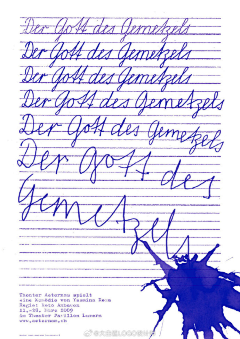 Der Gott des Gemetzels
Der Gott des Gemetzels
Der Gott des Gemetzels
Der Gott des Gemetzels
Der Gott des Gemetzels
Der Gott des
Gemetzels
Theater Aeternam spielt
eine Komödie von Yasmina Reza
Regie:
2009
Im Theater Pavillon Luzern
www.aeternam.ch